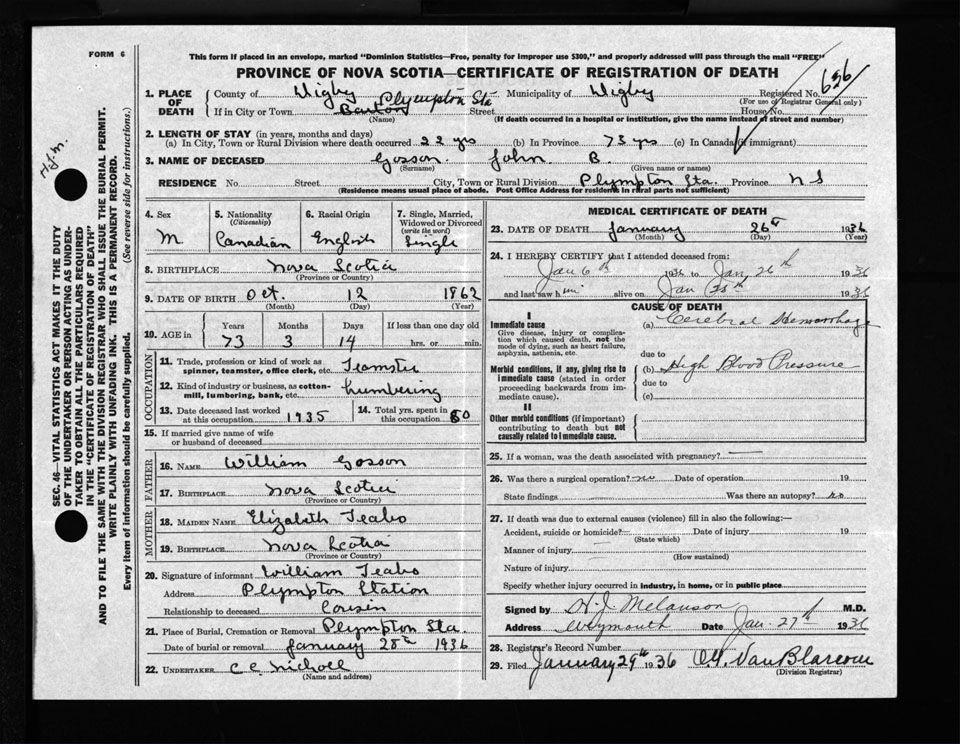 FORM 6
This form if placed in an envelope, marked "Dominion Statistics—Free, penalty for improper use $300," and properly addressed will pass through the mail "FREE"
PROVINCE OF NOVA SCOTIA—CERTIFICATE OF REGISTRATION OF DEATH
1. PLACE OF DEATH
County of Digby Municipality of Digby Registered No. 656
(For use of Registrar General only)
If in City or Town Barton Plympton Sta Street House No.
(Name) (If death occurred in a hospital or institution, give the name instead of street and number)
2. LENGTH OF STAY (in years, months and days)
(a) In City, Town or Rural Division where death occurred 22 yrs (b) In Province 73 yrs (c) In Canada (if immigrant)
3. NAME OF DECEASED Gosson John B.
(Surname) (Given name or names)
RESIDENCE No. Street City, Town or Rural Division Plympton Sta. Province N S
(Residence means usual place of abode. Post Office Address for residents in rural parts not sufficient)
4. Sex M
5. Nationality (Citizenship) Canadian
6. Racial Origin English
7. Single, Married, Widowed or Divorced (write the word) Single
8. BIRTHPLACE Nova Scotia
(Province or Country)
9. DATE OF BIRTH Oct. 12 1862
(Month) (Day) (Year)
10. AGE in Years Months Days If less than one day old
73 3 14 hrs. or min.
OCCUPATION
11. Trade, profession or kind of work as spinner, teamster, office clerk, etc. Teamster
12. Kind of industry or business, as cotton-mill, lumbering, bank, etc. Lumbering
13. Date deceased last worked at this occupation 1935
14. Total yrs. spent in this occupation 50
15. If married give name of wife or husband of deceased
FATHER
16. NAME William Gosson
17. BIRTHPLACE Nova Scotia
(Province or Country)
MOTHER
18. MAIDEN NAME Elizabeth Teabo
19. BIRTHPLACE Nova Scotia
(Province or Country)
20. Signature of informant William Teabo
Address Plympton Station
Relationship to deceased Cousin
21. Place of Burial, Cremation or Removal Plympton Sta.
Date of burial or removal January 28th 1936
22. UNDERTAKER C C Nicholl
(Name and address)
MEDICAL CERTIFICATE OF DEATH
23. DATE OF DEATH January 26th 1936
(Month) (Day) (Year)
24. I HEREBY CERTIFY that I attended deceased from:
Jan 6th 1936 to Jan 26th 1936
and last saw him alive on Jan 25th 1936
CAUSE OF DEATH
I
Immediate cause
Give disease, injury or complication which caused death, not the mode of dying, such as heart failure, asphyxia, asthenia, etc.
(a) Cerebral Hemorrhage
due to
Morbid conditions, if any, giving rise to immediate cause (stated in order proceeding backwards from immediate cause).
(b) High Blood Pressure
due to
(c)
II
Other morbid conditions (if important) contributing to death but not causally related to immediate cause.
25. If a woman, was the death associated with pregnancy?
26. Was there a surgical operation? no Date of operation 19
State findings Was there an autopsy? no
27. If death was due to external causes (violence) fill in also the following:—
Accident, suicide or homicide? Date of injury 19
(State which)
Manner of injury
(How sustained)
Nature of injury
Specify whether injury occurred in industry, in home, or in public place
Signed by H. J. Melanson M.D.
Address Weymouth Date Jan. 27th 1936
28. Registrar's Record Number
29. Filed January 29th 1936 Van Blarcom
(Division Registrar)
SEC. 46—VITAL STATISTICS ACT MAKES IT THE DUTY
OF THE UNDERTAKER OR PERSON ACTING AS UNDER-
TAKER TO OBTAIN ALL THE PARTICULARS REQUIRED
IN THE "CERTIFICATE OF REGISTRATION OF DEATH"
AND TO FILE THE SAME WITH THE DIVISION REGISTRAR WHO SHALL ISSUE THE BURIAL PERMIT.
WRITE PLAINLY WITH UNFADING INK. THIS IS A PERMANENT RECORD.
Every item of information should be carefully supplied. (See reverse side for instructions.)